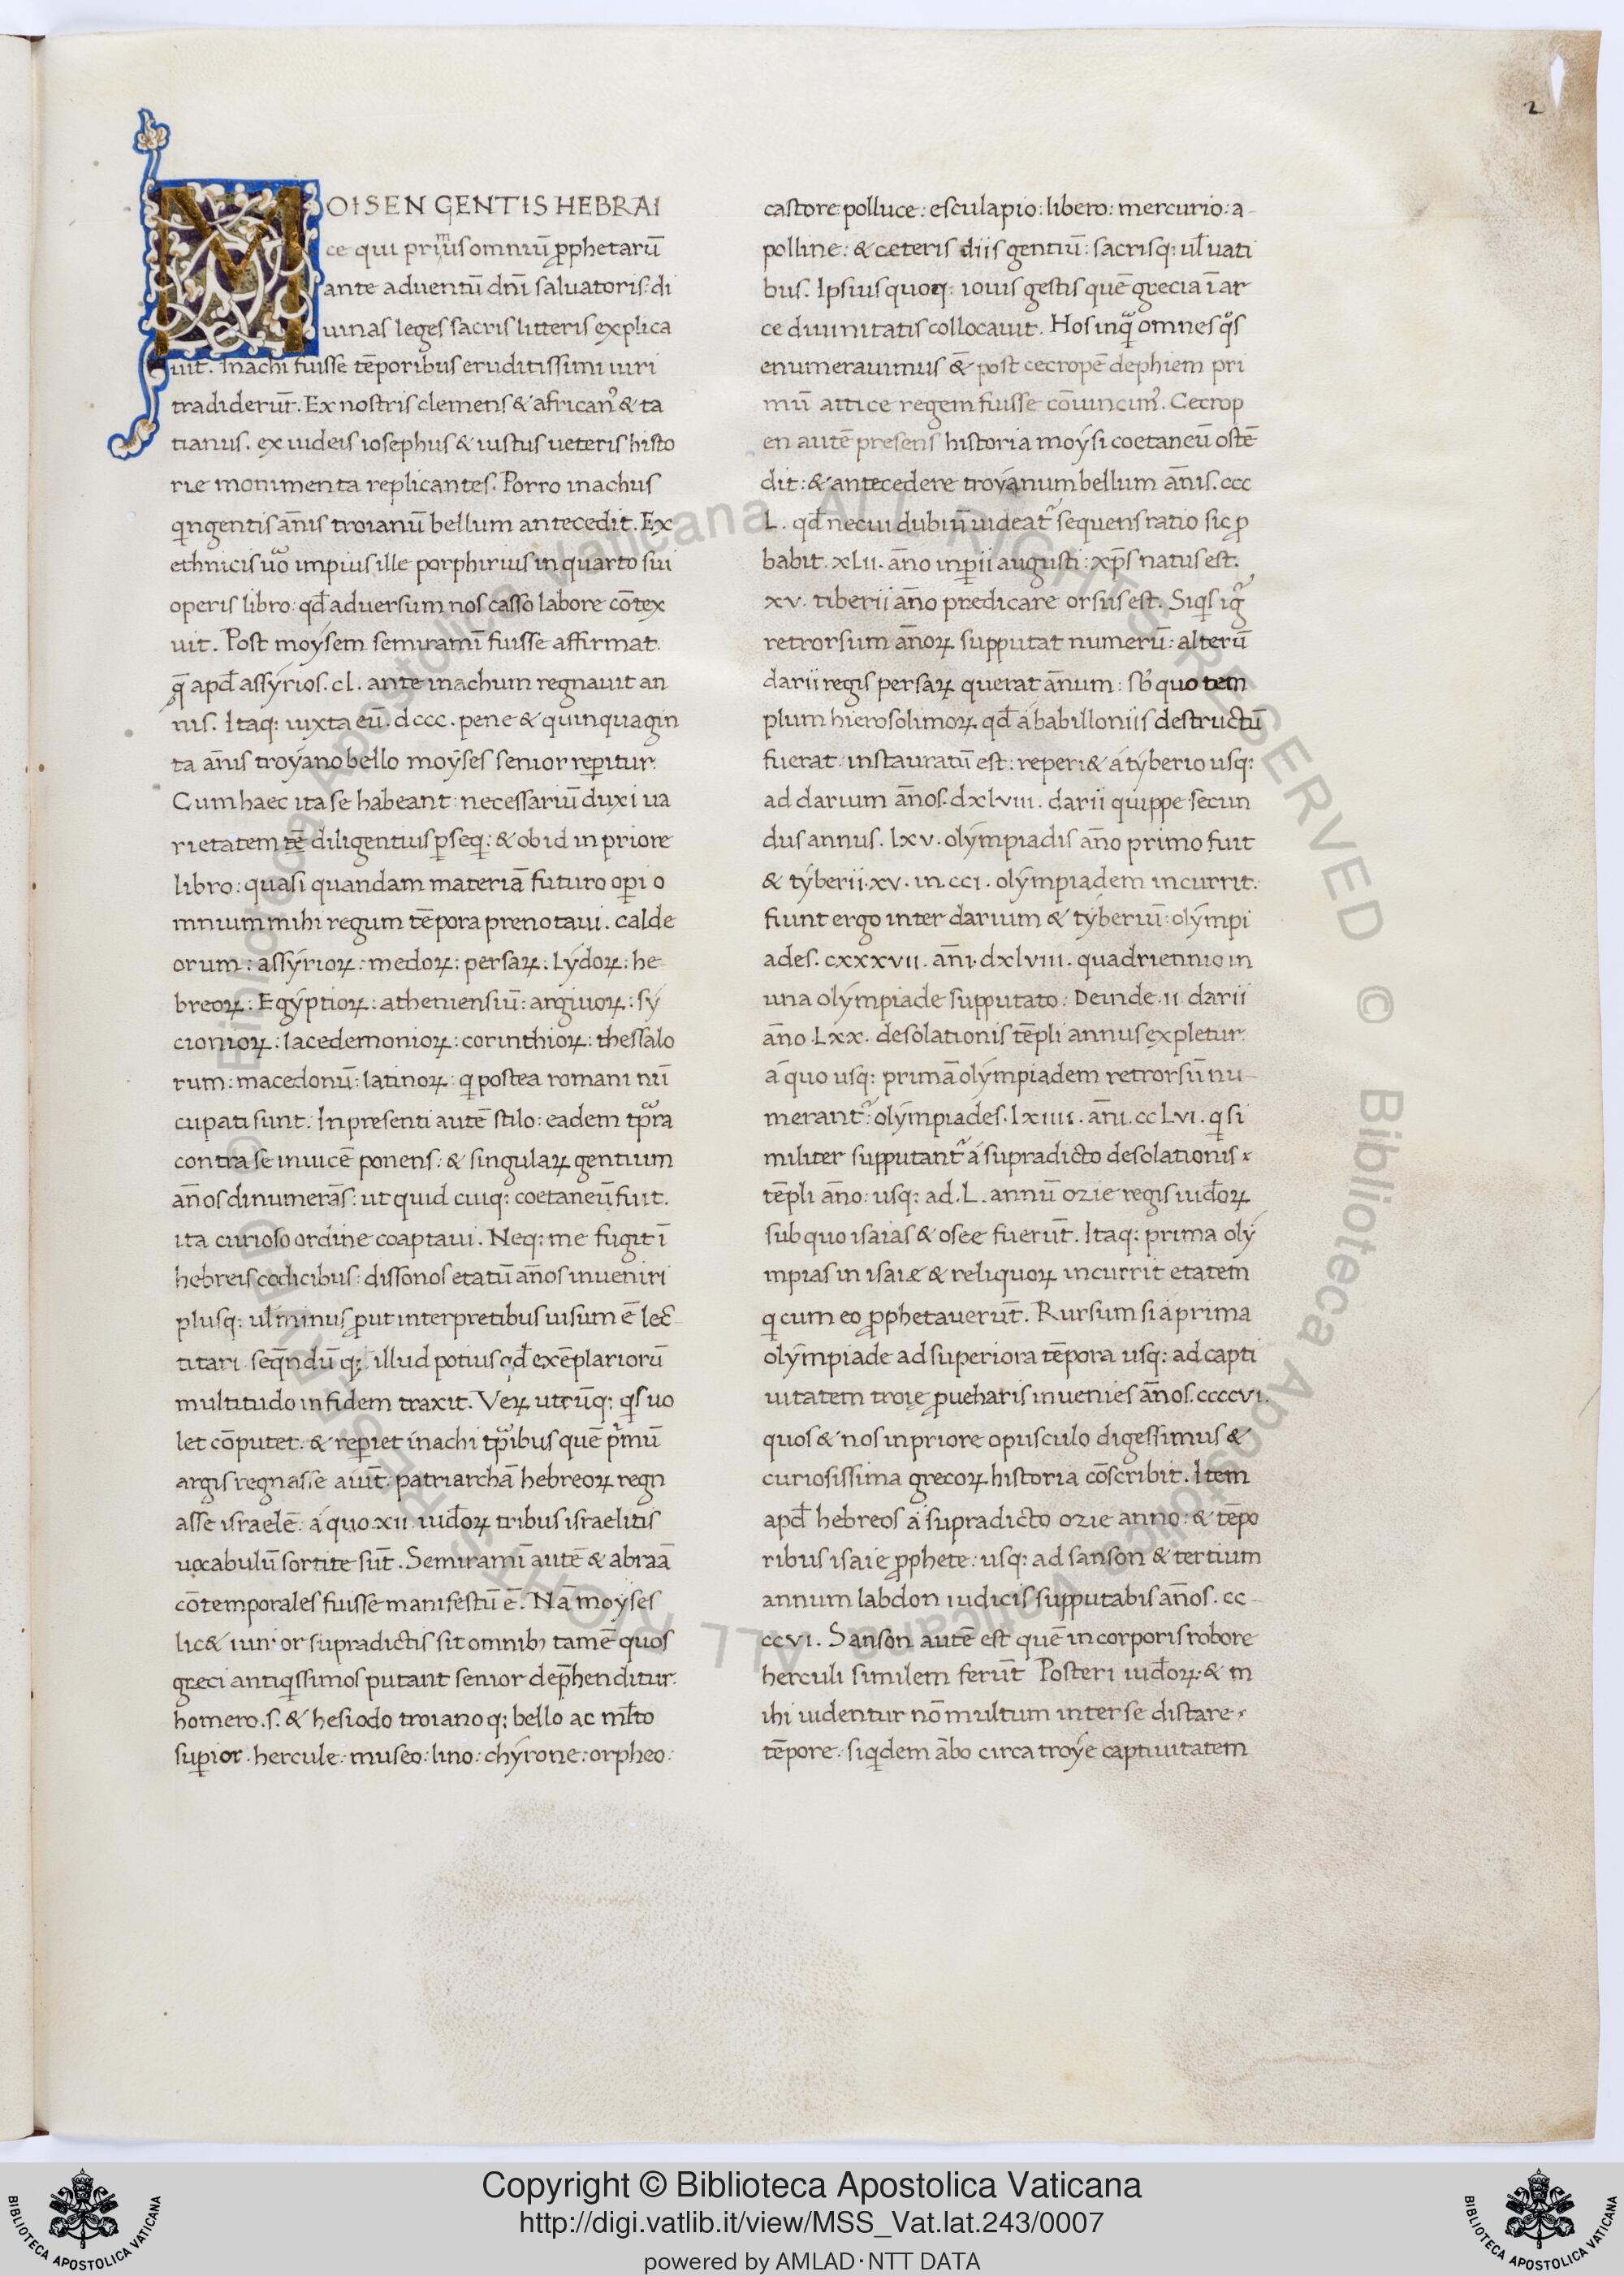 2
MOISEN GENTIS HEBRAI
ce qui primus omniū ꝓphetarū
ante aduentū dn̄i saluatoris: di
uinas leges sacris litteris explica
uit. Inachi fuisse tēporibus eruditissimi uiri
tradiderūt. Ex nostris clemens & african᾽ & ta
tianus. ex iudeis iosephus & iustus ueteris histo
rie monimenta replicantes. Porro inachus
qngentis ānis troianū bellum antecedit. Ex
ethnicis uo impius ille porphirius in quarto sui
operis libro: qd̄ aduersum nos casso labore cōtex
uit. Post moẏsem semiramī fuisse affirmat.
q̄ apd̄ assẏrios. cl. ante inachum regnauit an
nis. Itaq: iuxta eū. dccc. pene & quinquagin
ta ānis troẏano bello moẏses senior reꝑitur.
Cum haec ita se habeant: necessariū duxi ua
rietatem tē diligentius ꝑseq: & ob id in priore
libro: quasi quandam materiā futuro oꝑi o
mnium mihi regum tēpora prenotaui. calde
orum: assẏrioꝝ: medoꝝ: persaꝝ: Lẏdoꝝ: he-
breoꝝ: Egẏptioꝝ: atheniensiū: argiuoꝝ: sẏ
cionioꝝ: lacedemonioꝝ: corinthioꝝ: thessalo
rum: macedonū: latinoꝝ: q postea romani nū
cupati sunt. In presenti autē stilo: eadem tꝑra
contra se inuicē ponens: & singulaꝝ gentium
ānos dinumerās: ut quid cuiq: coetaneū fuit.
ita curioso ordine coaptaui. Neq: me fugit ī
hebreis codicibus: dissonos etatū ānos inueniri
plusq: ul̄ minus ꝓut interpretibus uisum ē lec-
titari seq̄ndū q; illud potius qd̄ exēplariorū
multitudo in fidem traxit. Veꝝ utcūq: qs uo
let cōputet. & reꝑiet inachi tꝑibus quē pʳmū
argis regnasse aiūt. patriarchā hebreoꝝ regn
asse israelē. á quo.xii. iud̄oꝝ tribus israelitis
uocabulū sortite sūt. Semiramī autē & abraā
cōtemporales fuisse manifestū ē. Nā moyses
lic& iunior supradictis sit omnibꝫ tamē quos
greci antiqssimos putant senior dep̄henditur.
homero.s. & hesiodo troiano q; bello ac ml̄to
suꝑior. hercule: museo: lino: chẏrone: orpheo:
castore polluce: esculapio: libero: mercurio: a-
polline: & ceteris diis gentiū: sacrisq: ul̄ uati
bus. Ipsius quoq: iouis gestis quē grecia ī ar
ce diuinitatis collocauit. Hos inqͣ omnes qͦs
enumerauimus & post cecropē dephiem pri
mū attice regem fuisse cōuincim᾽. Cecrop
en autē presens historia moẏsi coetaneū ostē
dit: & antecedere troẏanum bellum ānis. ccc
L. qd̄ ne cui dubiū uideat᾽ sequens ratio sic ꝓ
babit. xLii. āno inꝑii augusti: xp̄s natus est.
xv. tiberii āno predicare orsus est. Siqs igʳ
retrorsum ānoꝝ supputat numerū: alterū
darii regis persaꝝ querat ānum: sb᾽ quo tem
plum hierosolimoꝝ. qd̄ á babilloniis destructū
fuerat: instauratū est: reperi& á tẏberio usq:
ad darium ānos. dxlviii. darii quippe secun
dus annus. lxv. olẏmpiadis āno primo fuit
& tẏberii.xv. in.cci. olẏmpiadem incurrit.
fiunt ergo inter darium & tẏberiū: olẏmpi
ades. cxxxvii. āni. dxlviii. quadriennio in
una olẏmpiade supputato: Deinde.ii darii
āno.Lxx. desolationis tēpli annus expletur.
á quo usq: primā olẏmpiadem retrorsū nu-
merant᾽: olẏmpiades. lxiiii. āni. ccLvi. q si
militer supputant᾽ á supradicto desolationis
tēpli āno: usq: ad. L. annū ozie regis iud̄oꝝ
sub quo isaias & osee fuerūt. Itaq: prima olẏ
mpias in isaiæ & reliquoꝝ incurrit etatem
q cum eo ꝓphetauerūt. Rursum si á prima
olẏmpiade ad superiora tēpora usq: ad capti
uitatem troię ꝓueharis inuenies ānos. ccccvi.
quos & nos in priore opusculo digessimus &
curiosissima grecoꝝ historia cōscribit. Item
apd̄ hebreos á supradicto ozie anno: & tēpo
ribus isaie ꝓphete: usq: ad sanson & tertium
annum labdon iudicis supputabis ānos. cc-
ccvi. Sanson autē est quē in corporis robore
herculi similem ferūt Posteri iud̄oꝝ: & m
ihi uidentur nō multum inter se distare
tēpore. siqdem ābo circa troẏe captiuitatem
Copyright © Biblioteca Apostolica Vaticana
http://digi.vatlib.it/view/MSS_Vat.lat.243/0007
powered by AMLAD·NTT DATA
BIBLIOTECA APOSTOLICA VATICANA
BIBLIOTECA APOSTOLICA VATICANA
© Biblioteca Apostolica Vaticana ALL RIGHTS RESERVED © Biblioteca Apostolica Vaticana ALL RIGHTS RESERVED